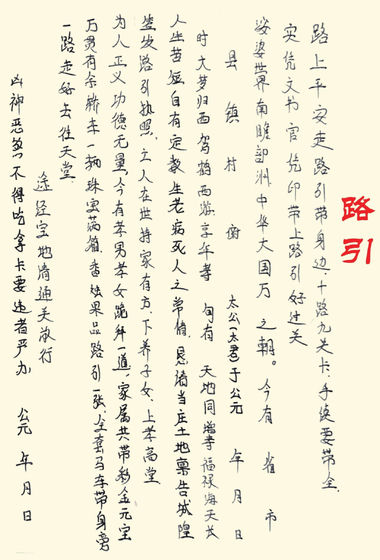 路引
路上平安走路引带身边、十路九关卡、手续要带全、
实凭文书官凭印带上路引好过关
娑婆世界南瞻部洲、中华大国万 之朝。今有 省 市
县 镇 村 街 太公(太君)于公元 年 月 日
时大梦归西驾鹤西游享年寿 旬有 天地同增寿福禄海天长
人生苦短自有定数生老病死人之常情、恳请当庄土地禀告城隍
签发路引执照、亡人在世持家有方、下养子女、上孝高堂
为人正义功德无量、今有孝男孝女跪拜一道、家属共带秒金元宝
万贯有余轿车一辆珠宝满箱、香烛果品路引一张、全套马车带身旁
一路走好去往天堂、
途经宝地请通关放行
凶神恶煞不得吃拿卡要违者严办
公元 年 月 日